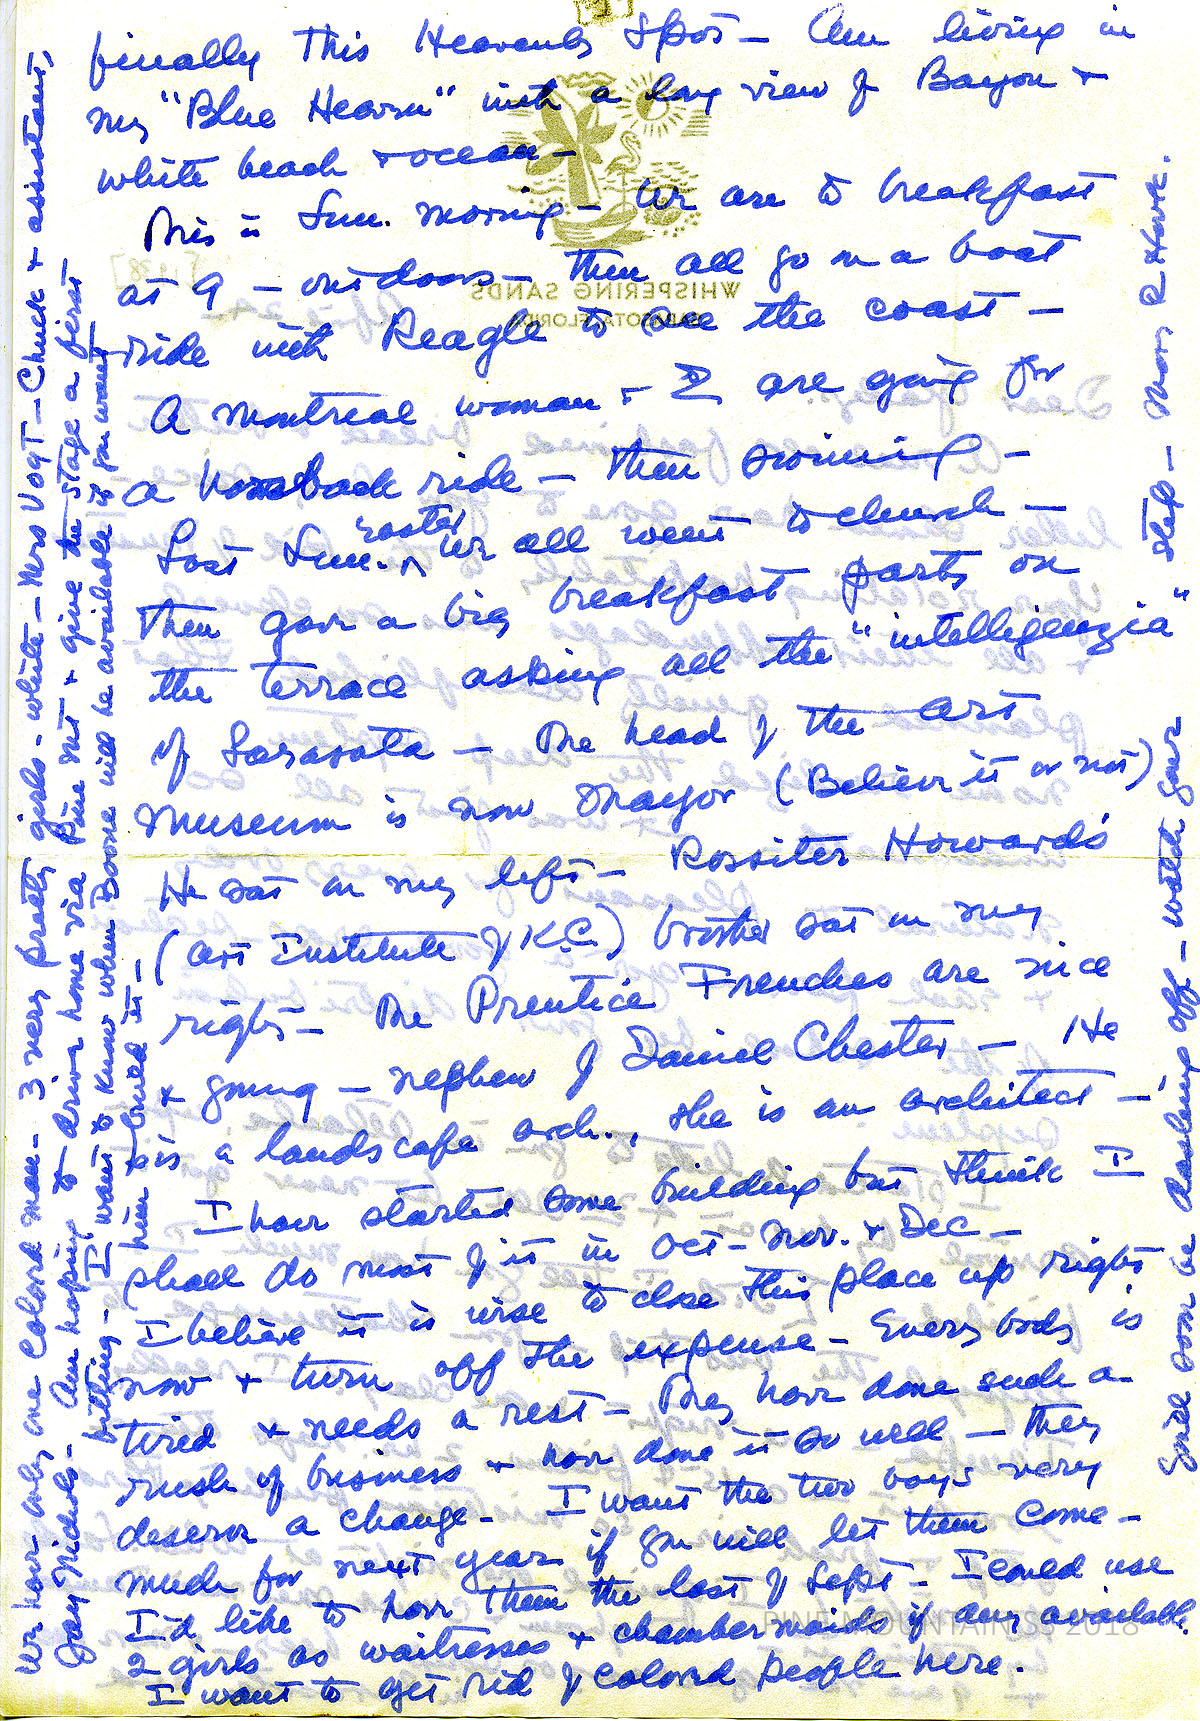 finally this Heavenly Spot - Am living in
my "Blue Heaven" with a long view of Bayou +
white beach + ocean -
This is Sun. morning - We are to breakfast
at 9 - outdoors - then all go on a boat
ride with Reagle to see the coast -
A Montreal woman + I are going for
a horseback ride - then swimming -
Last Sun. ^ Easter we all went to church -
then gave a big breakfast party on
the terrace asking all the "intelligenzia"
of Sarasota - The head of the art
Museum is now Mayor (Believe it or not)
He sat on my left - Rossiter Howard's
(Art Institute of K.C.) brother sat on my
right - The Prentice Frenches are nice
+ young - nephew of Daniel Chester - He
is a landscape arch., she is an architect -
I have started some building but think I
shall do most of it in Oct - Nov. + Dec -
I believe it is wise to close this place up right
now + turn off the expense - Everybody is
tired + needs a rest - They have done such a
rush of business + have done it so well - they
deserve a change - I want the two boys very
much for next year if you will let them come -
I'd like to have them the last of Sept - I could use
2 girls as waitresses + chambermaids if any available.
I want to get rid of colored people here.
We have only one colored man - 3 very pretty girls - white - Mrs Vogt - Chuck + assistant,
Jay Nichols - Am hoping to drive home via Pine Mt + give the stage a first
fitting - I want to know when Boone will be available if you want
him to build it -
Until soon be dashing off - watch your step - Mary R Hook.
WHISPERING SANDS
SARASOTA, FLORIDA
[1938]
Dear
PINE MOUNTAIN SS 2018